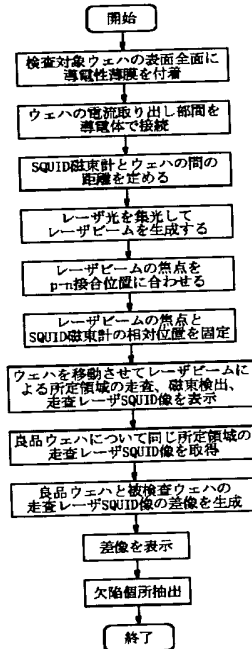 開始
検査対象ウェハの表面全面に
導電性薄膜を付着
ウェハの電流取り出し部間を
導電体で接続
SQUID磁束計とウェハの間の
距離を定める
レーザ光を集光して
レーザビームを生成する
レーザビームの焦点を
p-n接合位置に合わせる
レーザビームの焦点と
SQUID磁束計の相対位置を固定
ウェハを移動させてレーザビームに
よる所定領域の走査、磁束検出、
走査レーザSQUID像を表示
良品ウェハについて同じ所定領域の
走査レーザSQUID像を取得
良品ウェハと被検査ウェハの
走査レーザSQUID像の差像を生成
差像を表示
欠陥個所抽出
終了